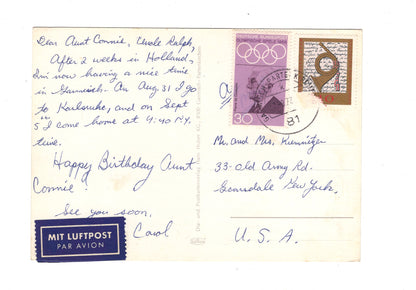 Dear Aunt Connie, Uncle Ralph,
After 2 weeks in Holland,
I'm now having a nice time
in Munich. On Aug. 31 I go
to Karlsruhe, and on Sept
5 I come home at 4:40 N.Y.
time.
Happy Birthday Aunt
Connie!
See you soon,
Carol
MIT LUFTPOST
PAR AVION
30
81
Mr. and Mrs. Kiernitzer
33-Old Army Rd.
Scarsdale New York.
U. S. A.